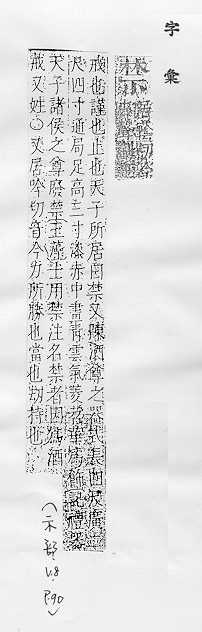 字彙
禁
戒也謹也止也天子所居曰禁又陳酒尊之器長四尺廣二
尺四寸通局足高三寸漆赤中畫青雲氣菱
天子諸侯之尊廢禁士用禁注名禁者因爲酒
戒又姓〇又居吟切音今力所勝也當也劫持也
(示部 V.8 P.90)